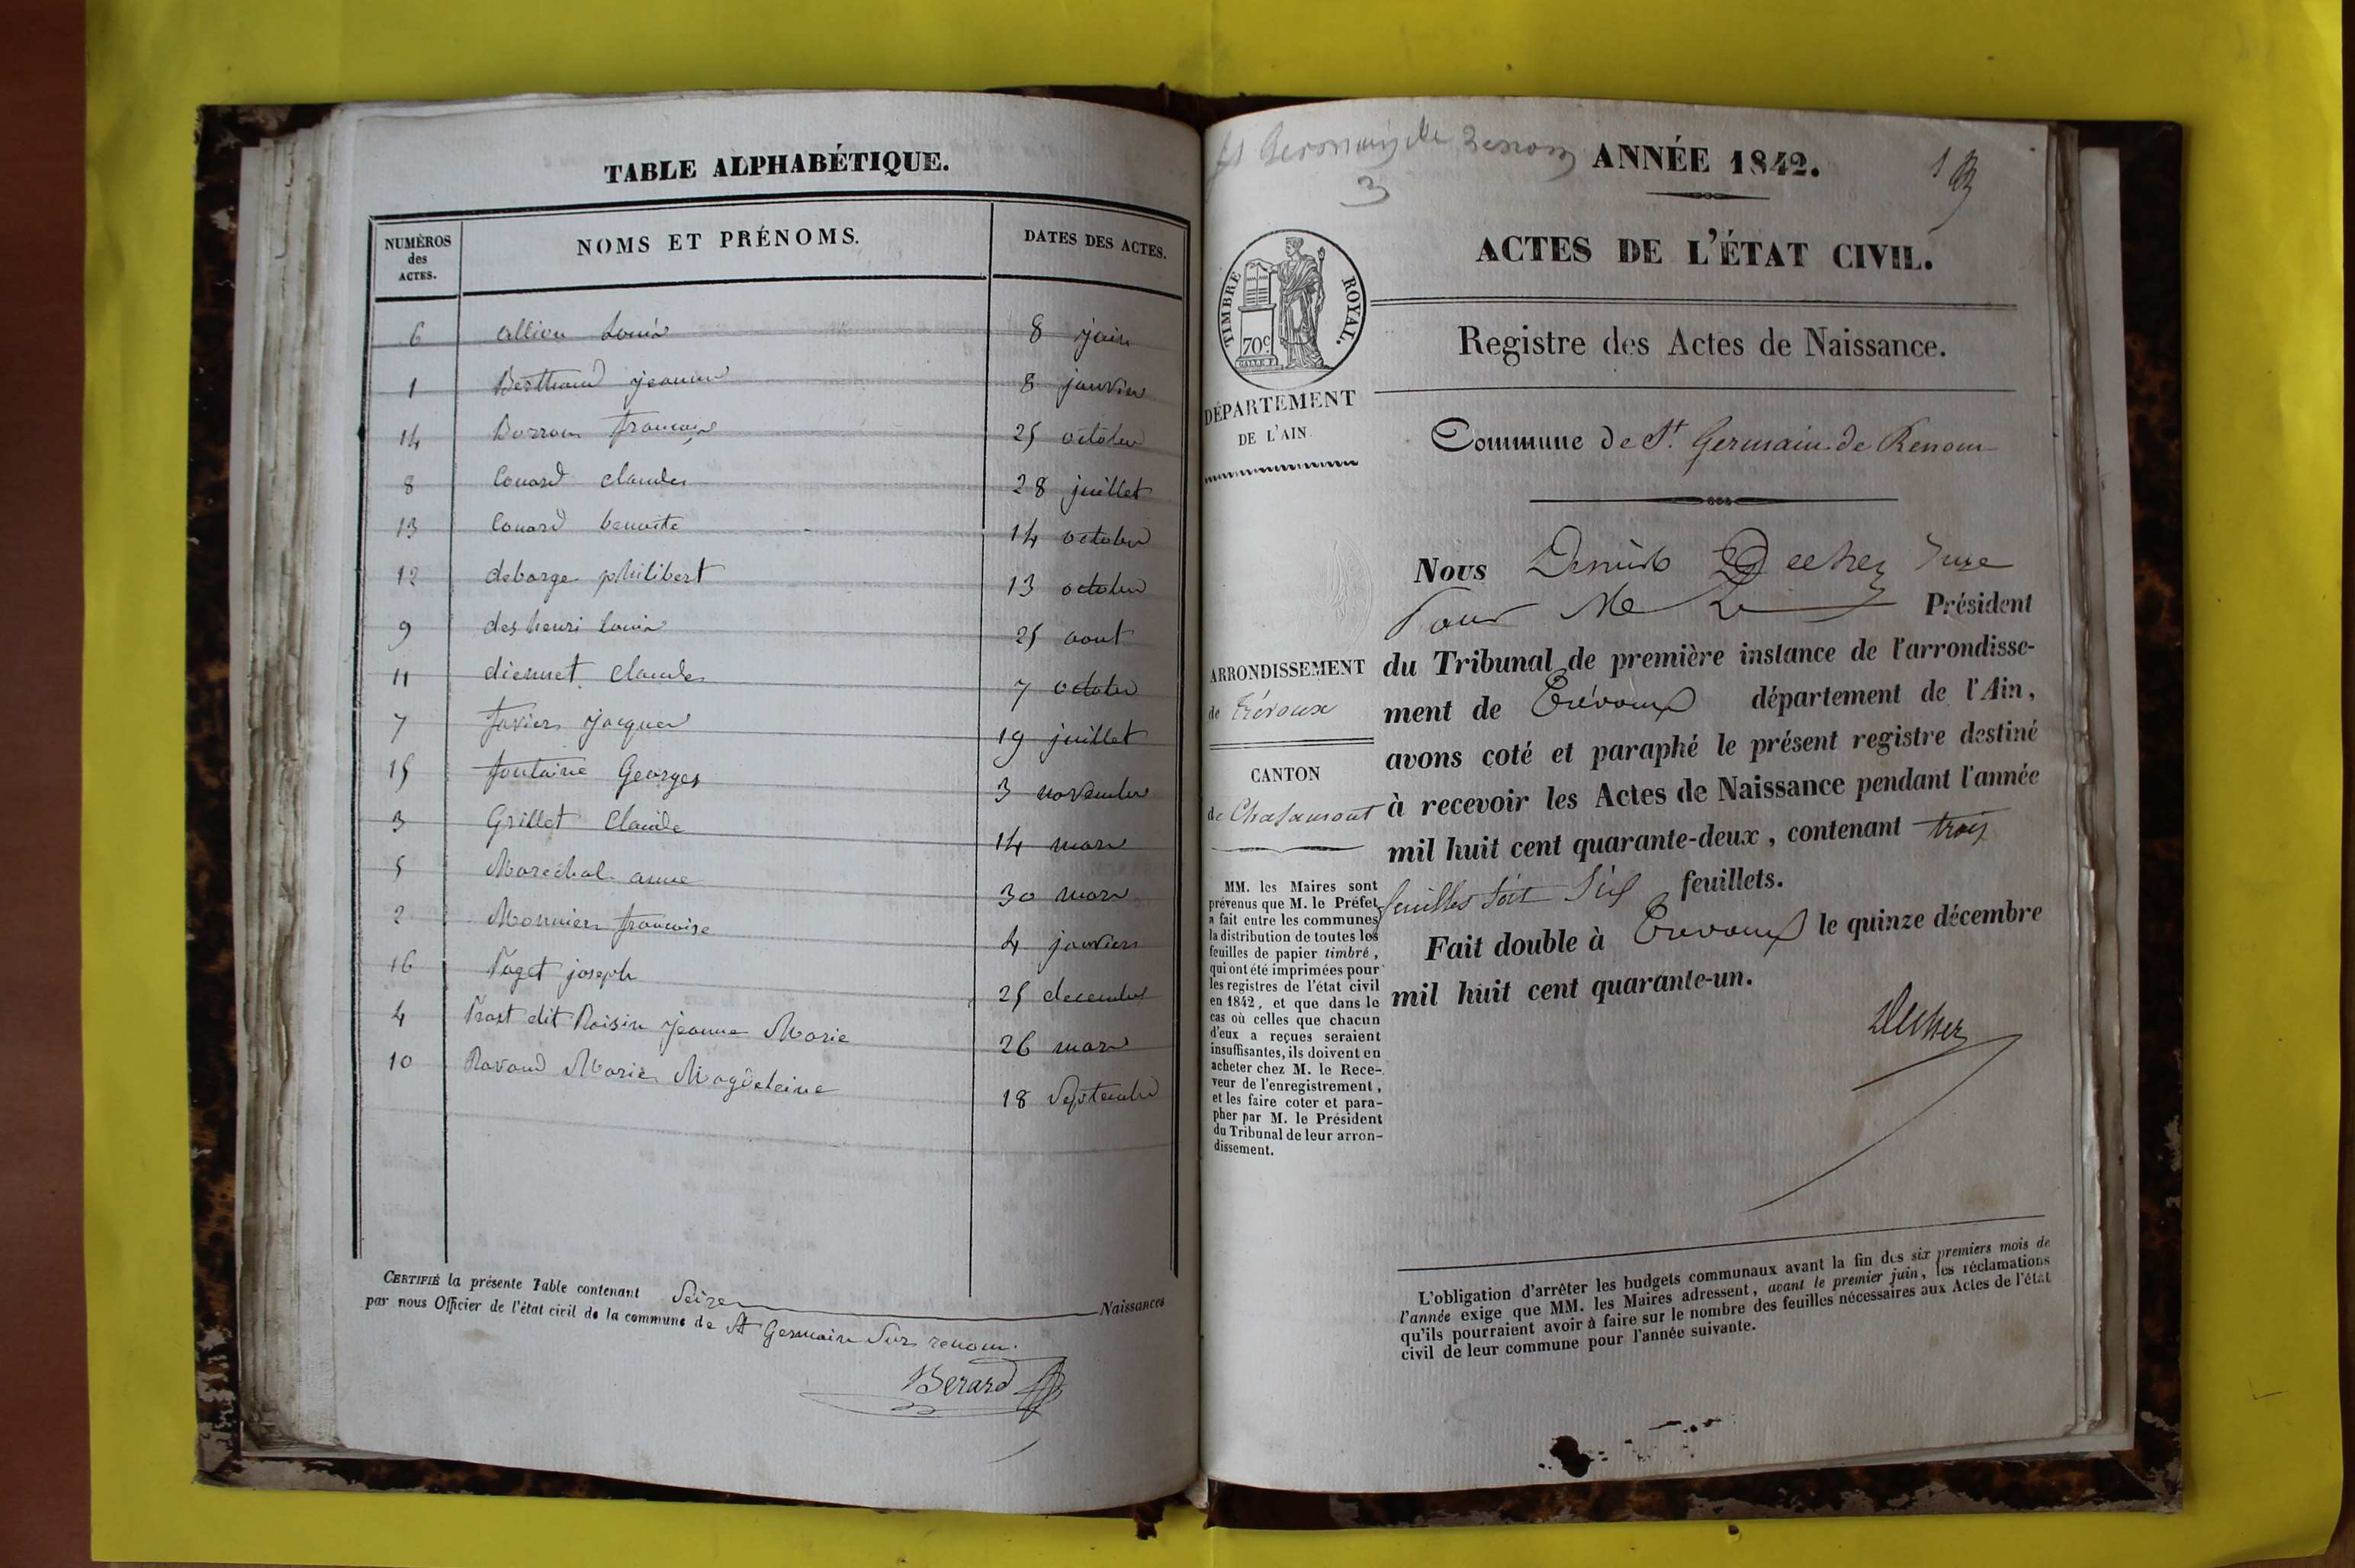 TABLE ALPHABÉTIQUE.
NUMÉROS des ACTES. NOMS ET PRÉNOMS. DATES DES ACTES.
6 allieu Louis 8 juin
1 Berthaud jeanne 8 janvier
14 françois 25 octobre
8 Couard claude 28 juillet
13 Couard benoite 14 octobre
12 deborge philibert 13 octobre
9 deshenri Louis 25 aout
11 diennet claude 7 octobre
7 favier jacques 19 juillet
15 fontaine Georges 3 novembre
3 Grillet Claude 14 mars
5 Maréchal anne 30 mars
2 Monnier francoise 4 janvier
16 Paget joseph 25 decembre
4 Prost dit Raisin jeanne Marie 26 mars
10 Ravaud Marie Magdeleine 18 Septembre
CERTIFIÉ la présente Table contenant Seize Naissances
par nous Officier de l'état civil de la commune de St Germain Sur renom.
Berard
St Germain de Renom
3
ANNÉE 1842.
ACTES DE L'ÉTAT CIVIL.
TIMBRE ROYAL.
70c
Registre des Actes de Naissance.
DÉPARTEMENT
DE L'AIN.
Commune de St. Germain de Renom
Nous Denis Decher Juge
Pour Mr Le Président
du Tribunal de première instance de l'arrondisse-
ment de Trévoux département de l'Ain,
avons coté et paraphé le présent registre destiné
à recevoir les Actes de Naissance pendant l'année
mil huit cent quarante-deux, contenant trois
feuilles soit Six feuillets.
Fait double à Trevoux le quinze décembre
mil huit cent quarante-un.
Decher
ARRONDISSEMENT
de Trévoux
CANTON
de Chalamont
MM. les Maires sont
prévenus que M. le Préfet
a fait entre les communes
la distribution de toutes les
feuilles de papier timbré,
qui ont été imprimées pour
les registres de l'état civil
en 1842, et que dans le
cas où celles que chacun
d'eux a reçues seraient
insuffisantes, ils doivent en
acheter chez M. le Rece-
veur de l'enregistrement,
et les faire coter et para-
pher par M. le Président
du Tribunal de leur arron-
dissement.
L'obligation d'arrêter les budgets communaux avant la fin des six premiers mois de
l'année exige que MM. les Maires adressent, avant le premier juin, les réclamations
qu'ils pourraient avoir à faire sur le nombre des feuilles nécessaires aux Actes de l'état
civil de leur commune pour l'année suivante.